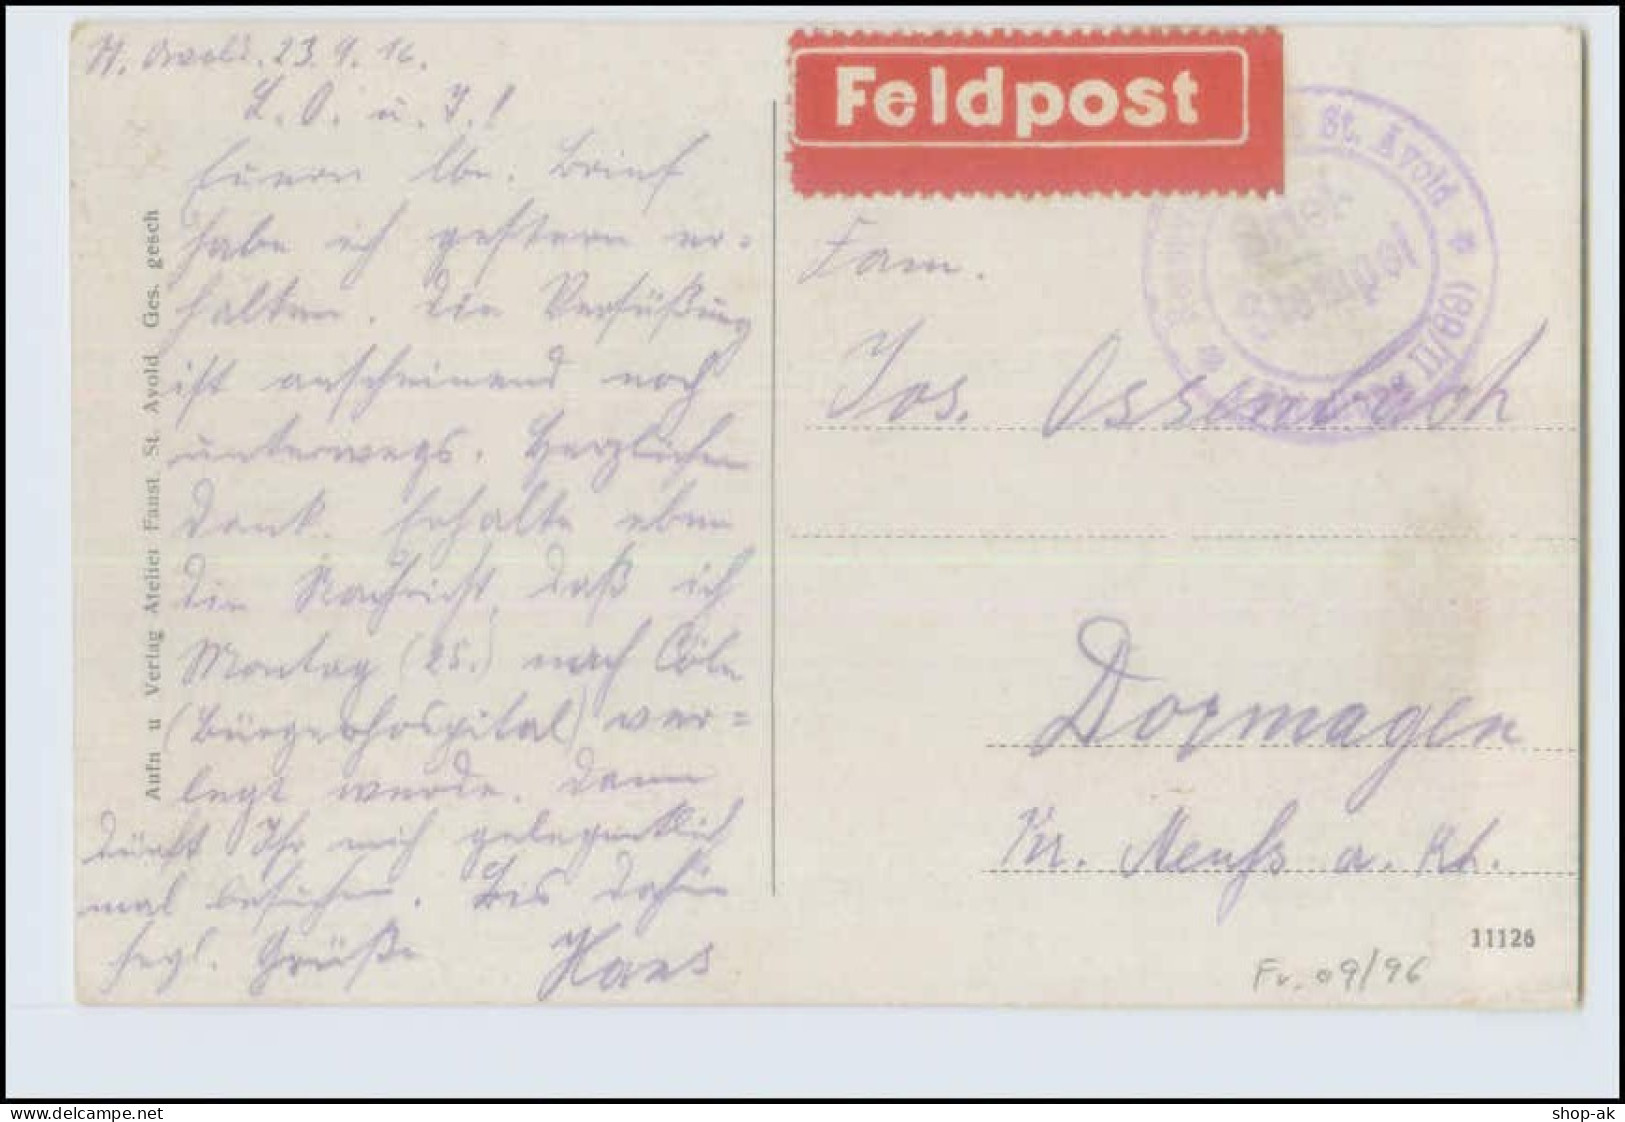 St. Avold. 23.9.16.
L. O. u. T.!
Euern lbn. Brief
habe ich gestern er=
halten. Die
ist anscheinend noch
unterwegs. Herzlichen
Dank. Erhalte eben
die Nachricht, daß ich
Montag (25.) nach Cöln
(Bürgerhospital) ver=
legt werde. Dann
dürft Ihr mich gelegentlich
mal besuchen. Bis dahin
hrzl. Grüße Hans
Aufn u Verlag Atelier Faust St. Avold Ges. gesch
Feldpost
St. Avold
Brief
Stempel
Fam.
Jos. Ossenbach
Dormagen
Kr. Neuß a. Rh.
11126
Fr. 09/96
www.delcampe.net
shop-ak